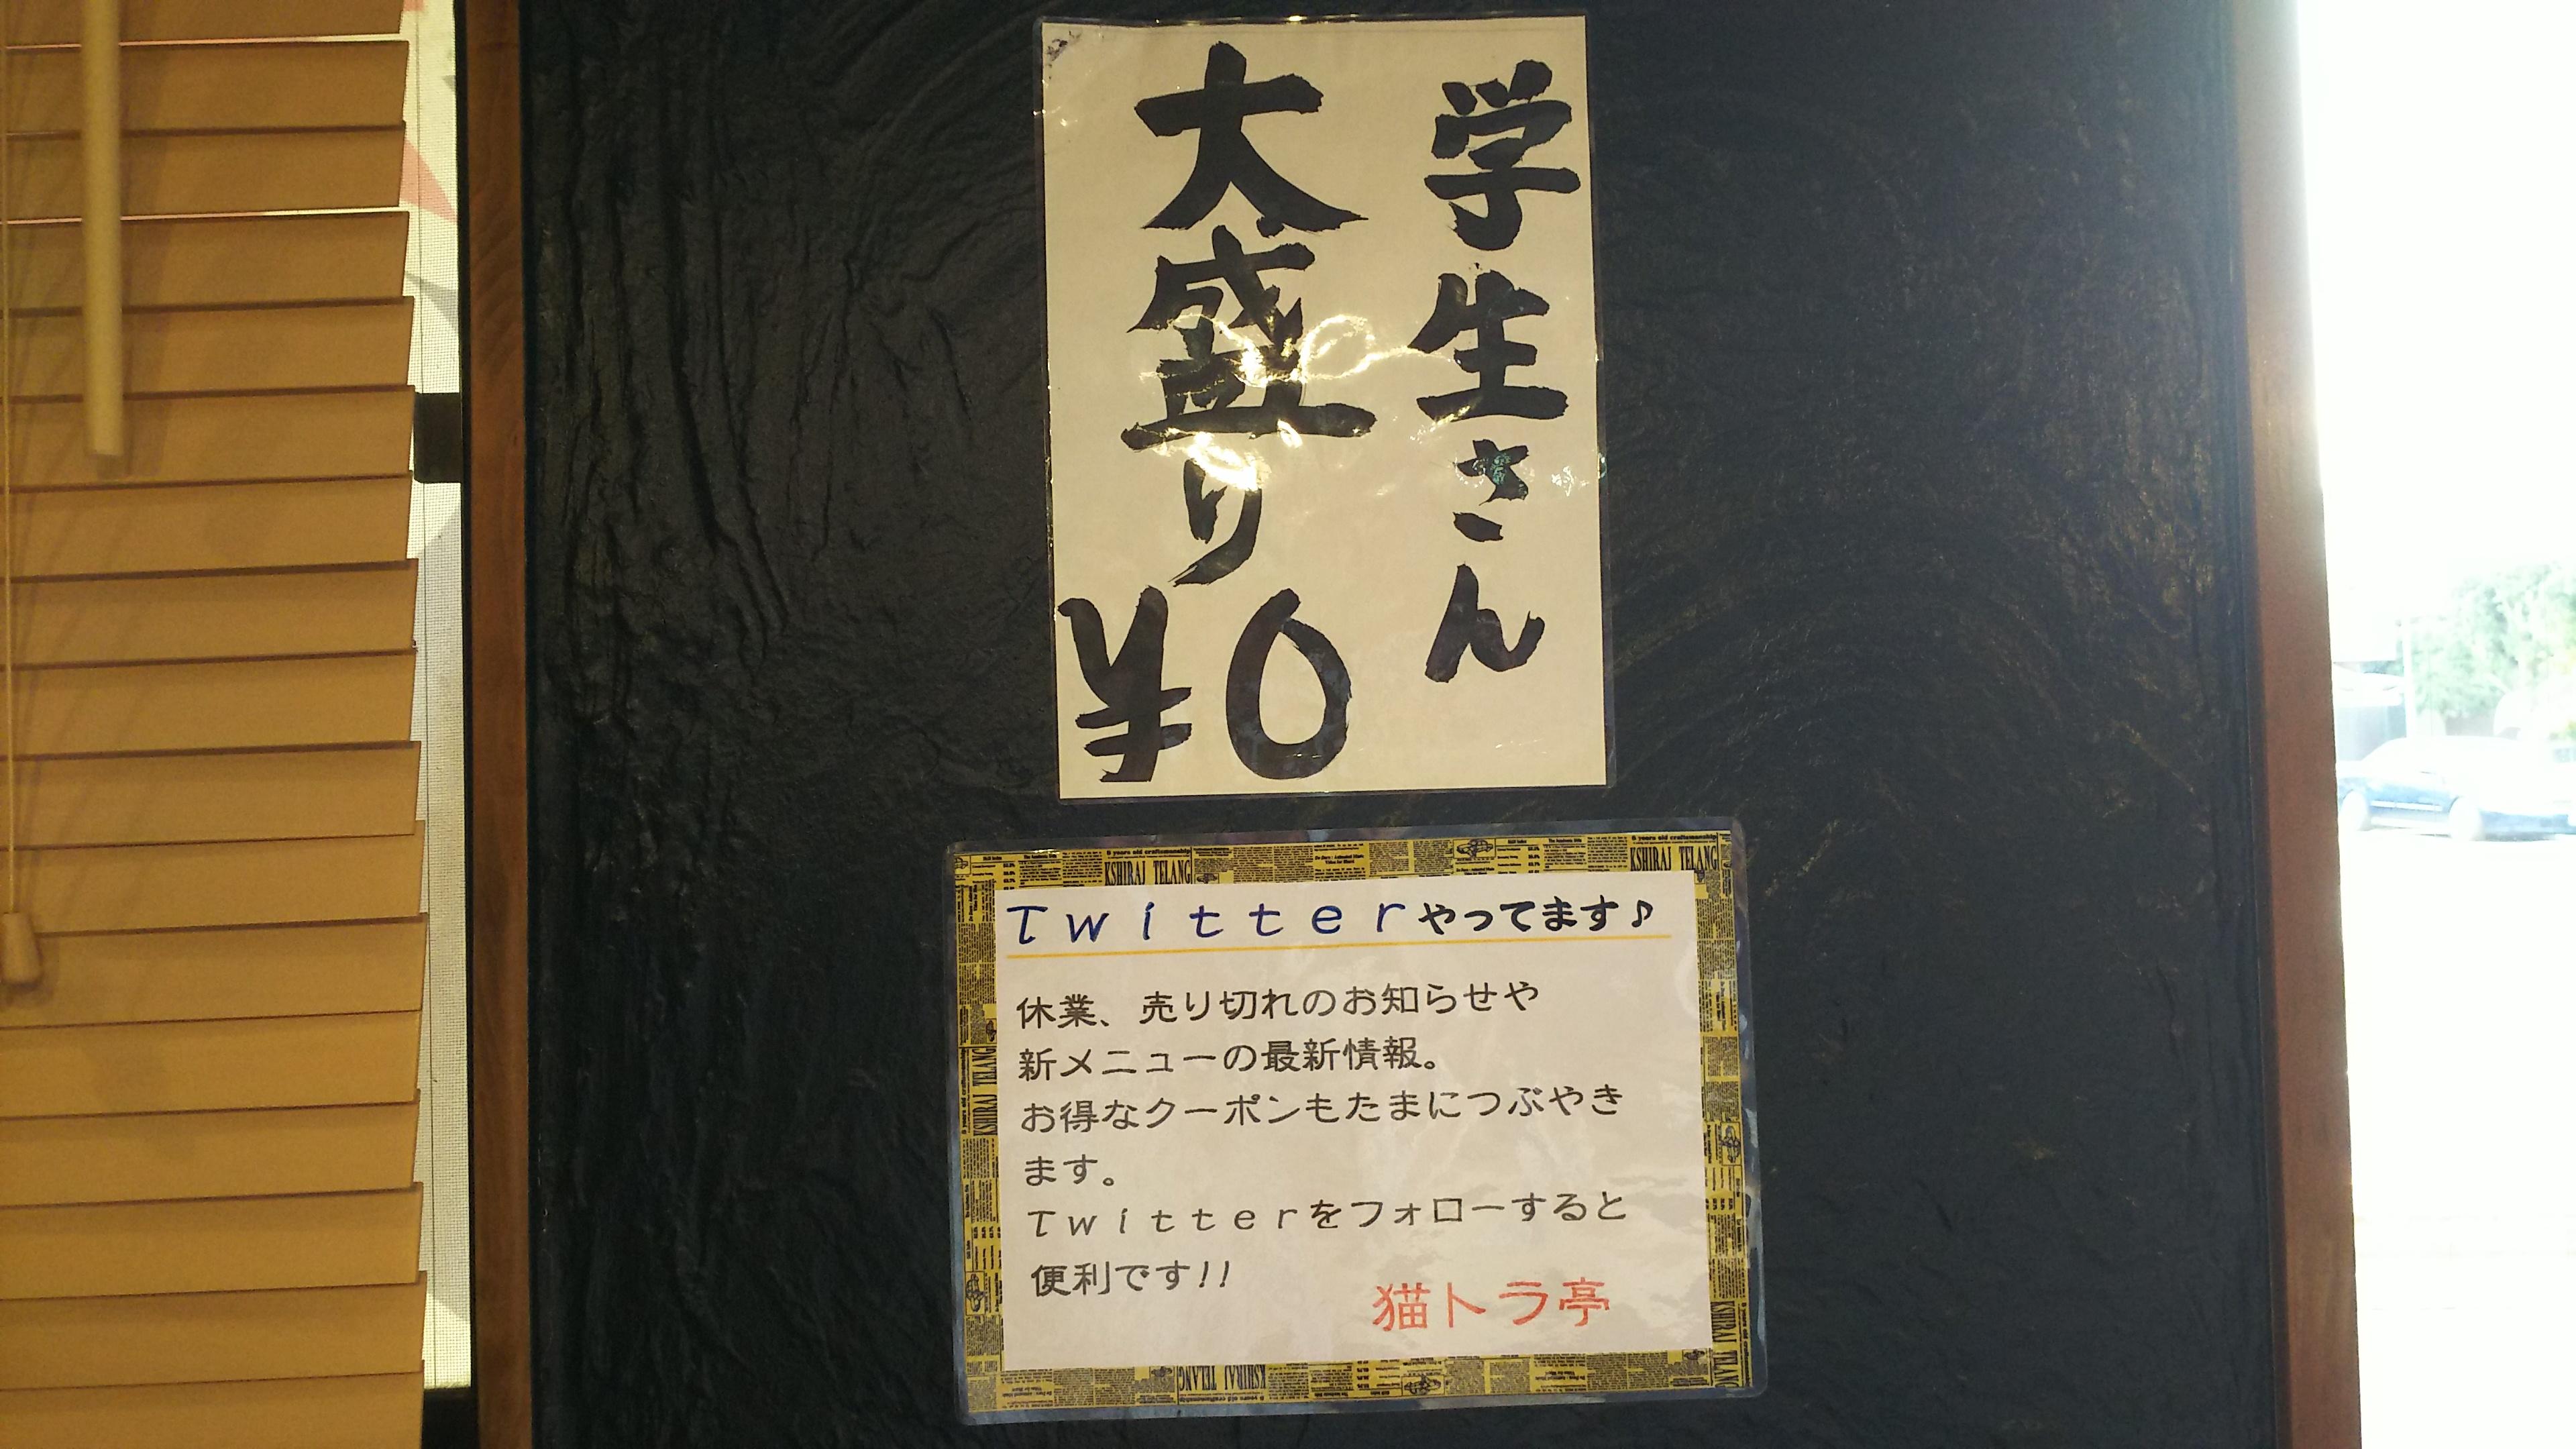 学生さん
大盛り
¥0
Twitterやってます♪
休業、売り切れのお知らせや
新メニューの最新情報。
お得なクーポンもたまにつぶやき
ます。
Twitterをフォローすると
便利です!!
猫トラ亭
KSHIRAJ TELANG
KSHIRAJ TELANG